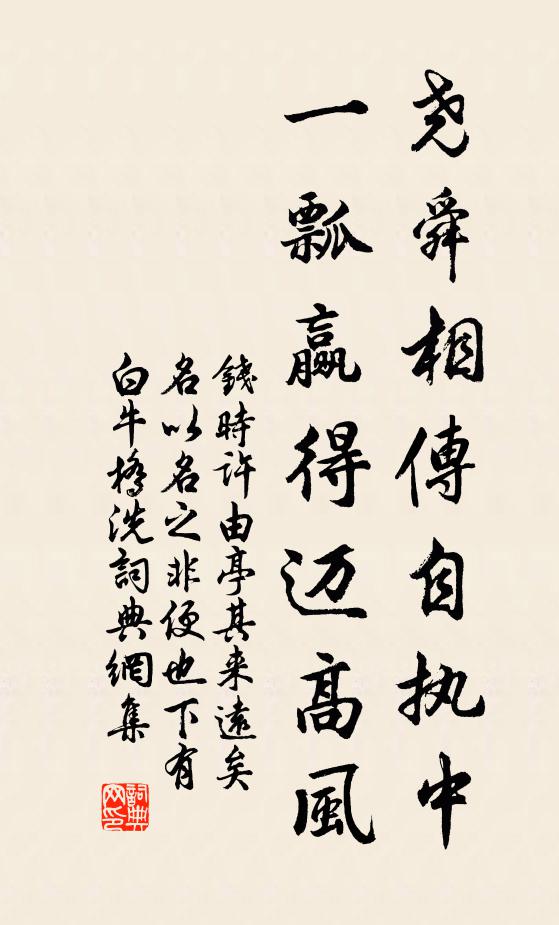 尧舜相傳自执中
一瓢贏得迈高風
錢時許由亭其来遠矣
名以名之非便也下有
白牛橋洗詞典網集
詞典
网印